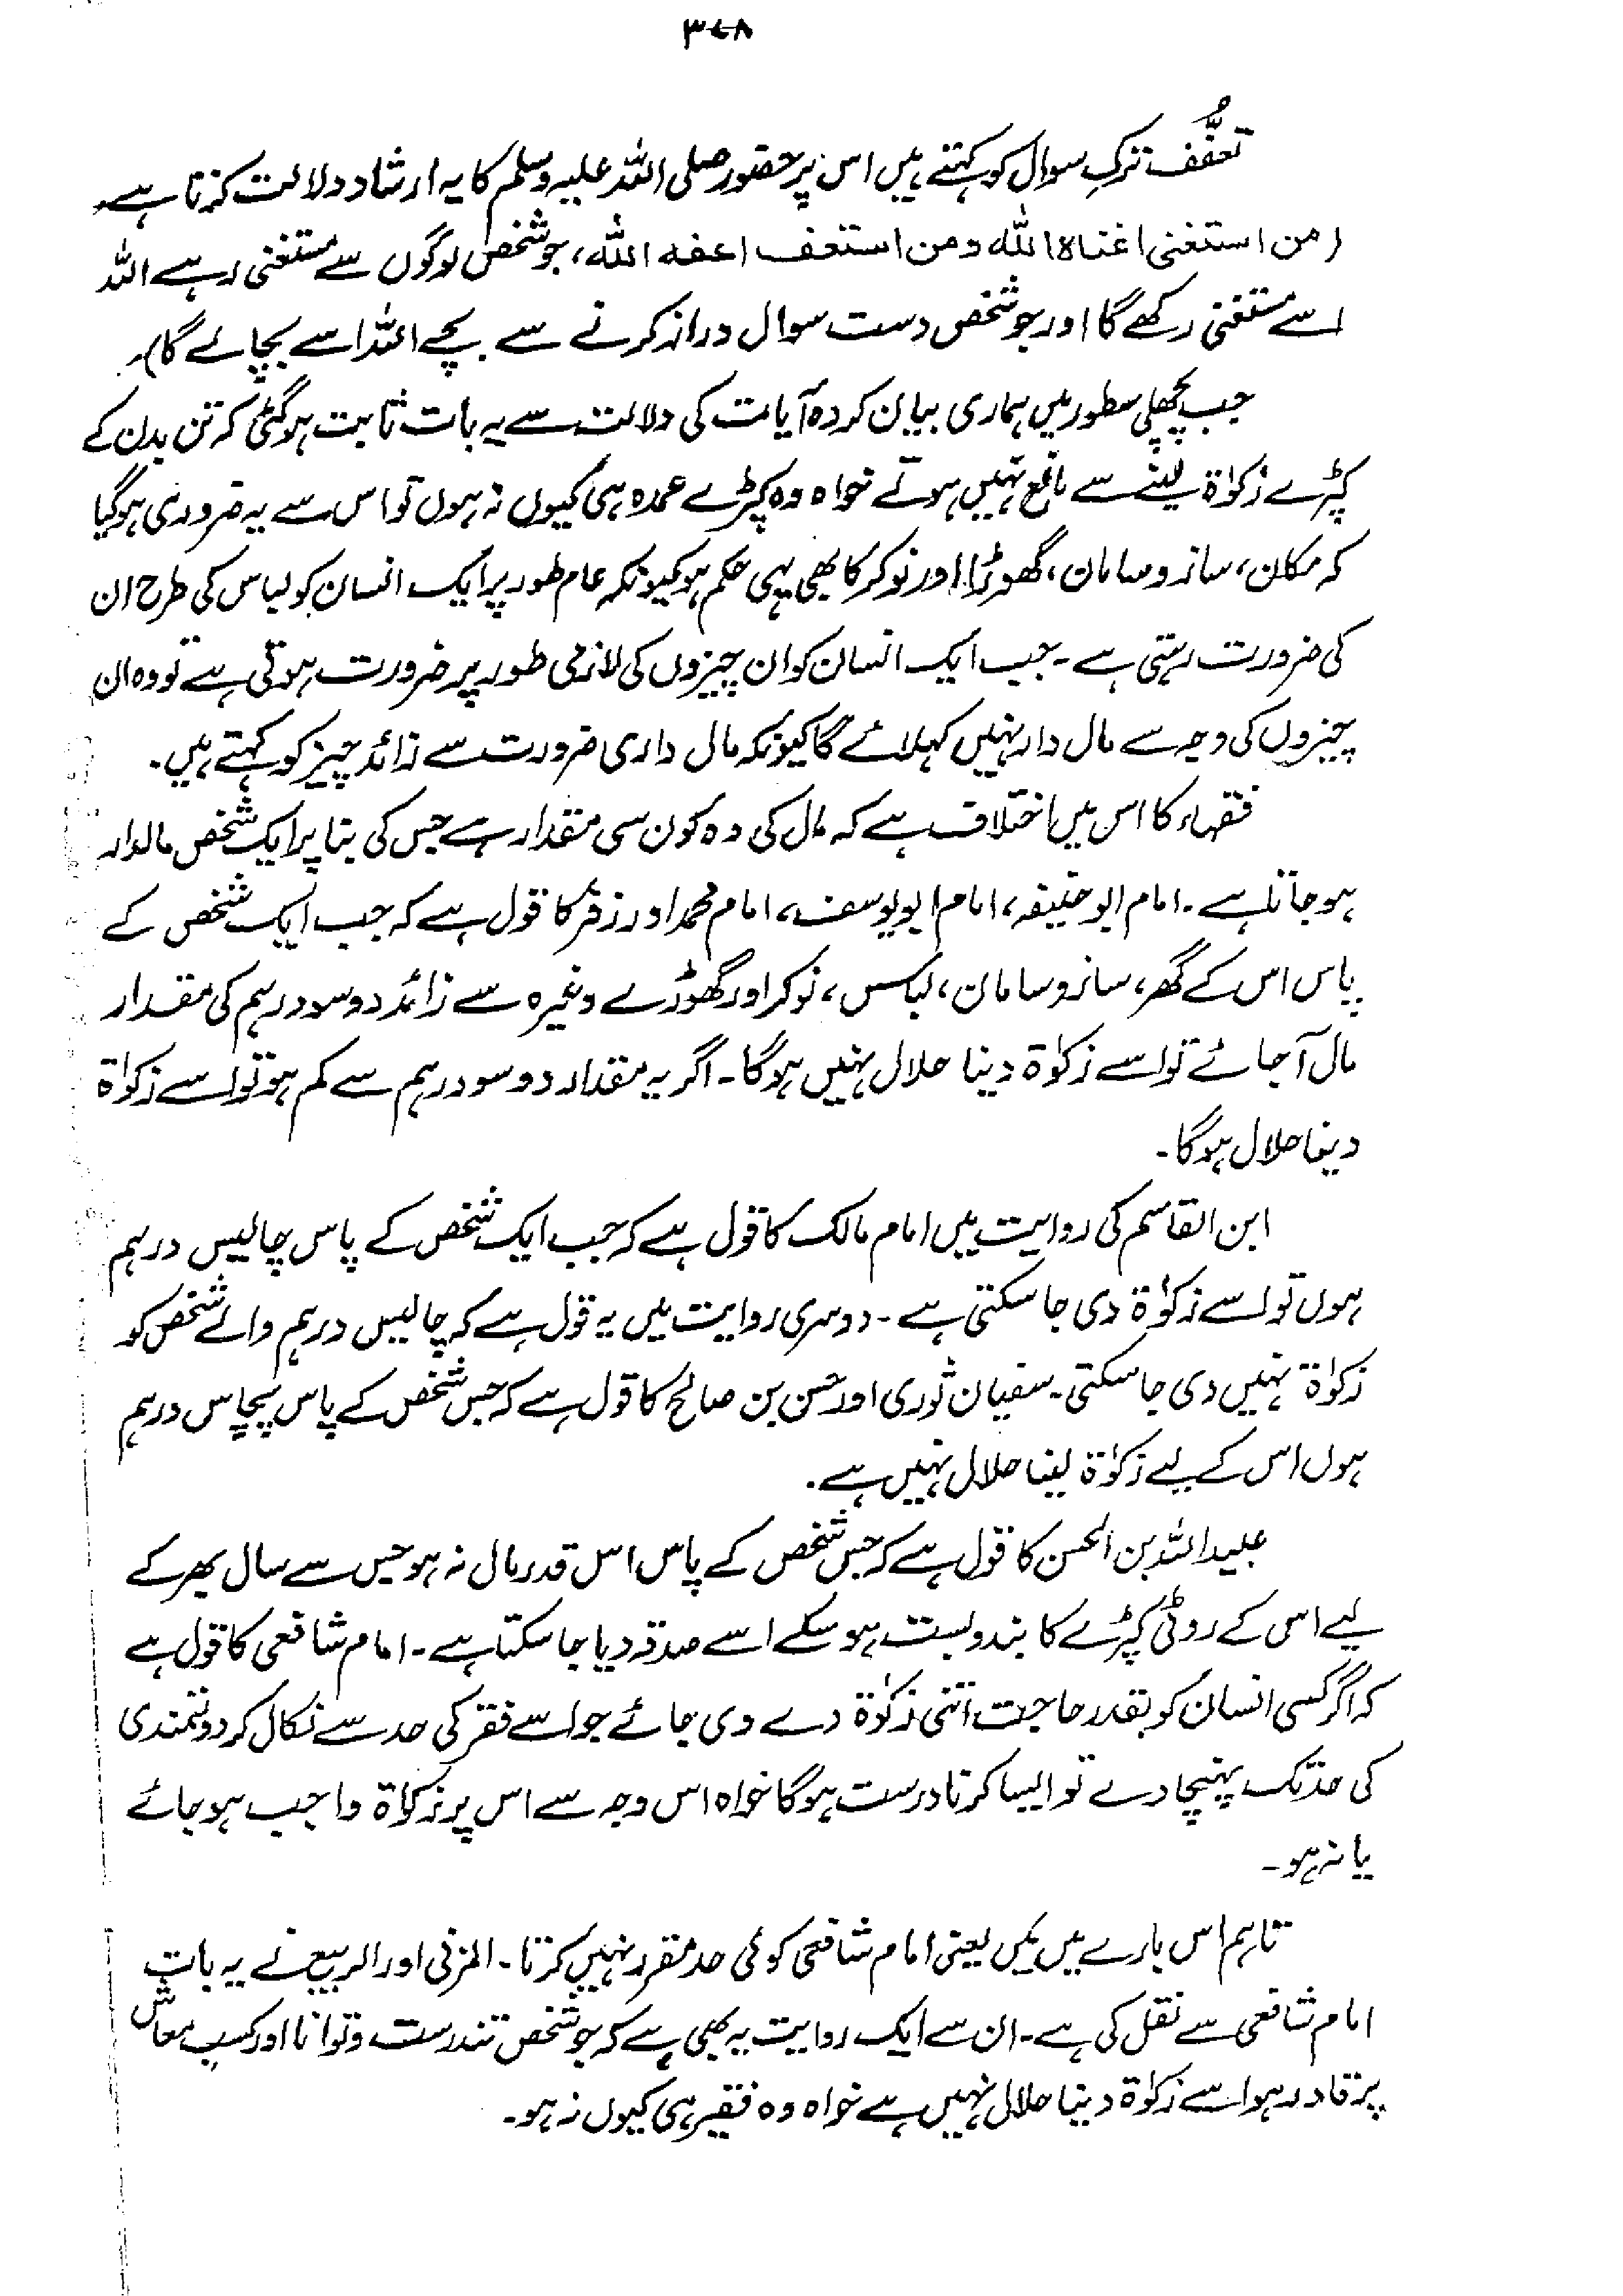 ۳۷۸
تعفُّف ترکِ سوال کو کہتے ہیں اس پر حضور صلی اللہ علیہ وسلم کا یہ ارشاد دلالت کرتا ہے۔
(من استغنی اغناہ اللہ ومن استعف اعفہ اللہ، جو شخص لوگوں سے مستغنی رہے اللہ
اسے مستغنی رکھے گا اور جو شخص دست سوال دراز کرنے سے بچے اللہ اسے بچالے گا)۔
جب پچھلی سطور میں ہماری بیان کردہ آیات کی دلالت سے یہ بات ثابت ہوگئی کہ تن بدن کے
کپڑے زکوٰۃ لینے سے مانع نہیں ہوتے خواہ وہ کپڑے عمدہ ہی کیوں نہ ہوں تو اس سے یہ ضروری ہوگیا
کہ مکان، سازو سامان، گھوڑا اور نوکر کا بھی یہی حکم ہو کیونکہ عام طور پر ایک انسان کو لباس کی طرح ان
کی ضرورت رہتی ہے۔ جب ایک انسان کو ان چیزوں کی لازمی طور پر ضرورت ہوتی ہے تو وہ ان
چیزوں کی وجہ سے مال دار نہیں کہلائے گا کیونکہ مال داری ضرورت سے زائد چیز کو کہتے ہیں۔
فقہاء کا اس میں اختلاف ہے کہ مال کی وہ کون سی مقدار ہے جس کی بنا پر ایک شخص مالدار
ہو جاتا ہے۔ امام ابو حنیفہ، امام ابو یوسف، امام محمد اور زفر کا قول ہے کہ جب ایک شخص کے
پاس اس کے گھر، سازو سامان، لباس، نوکر اور گھوڑے وغیرہ سے زائد دو سو درہم کی مقدار
مال آجائے تو اسے زکوٰۃ دینا حلال نہیں ہوگا۔ اگر یہ مقدار دو سو درہم سے کم ہو تو اسے زکوٰۃ
دینا حلال ہوگا۔
ابن القاسم کی روایت میں امام مالک کا قول ہے کہ جب ایک شخص کے پاس چالیس درہم
ہوں تو اسے زکوٰۃ دی جاسکتی ہے۔ دوسری روایت میں یہ قول ہے کہ چالیس درہم والے شخص کو
زکوٰۃ نہیں دی جاسکتی۔ سفیان ثوری اور حسن بن صالح کا قول ہے کہ جس شخص کے پاس پچاس درہم
ہوں اس کے لیے زکوٰۃ لینا حلال نہیں ہے۔
عبید اللہ بن الحسن کا قول ہے کہ جس شخص کے پاس اس قدر مال نہ ہو جس سے سال بھر کے
لیے اس کے روٹی کپڑے کا بندوبست ہوسکے اسے صدقہ دیا جاسکتا ہے۔ امام شافعی کا قول ہے
کہ اگر کسی انسان کو بقدر حاجت اتنی زکوٰۃ دے دی جائے جو اسے فقر کی حد سے نکال کر دولتمندی
کی حد تک پہنچا دے تو ایسا کرنا درست ہوگا خواہ اس وجہ سے اس پر زکوٰۃ واجب ہو جائے
یا نہ ہو۔
تاہم اس بارے میں میں یعنی امام شافعی کوئی حد مقرر نہیں کرتا۔ المزنی اور الربیع نے یہ بات
امام شافعی سے نقل کی ہے۔ ان سے ایک روایت یہ بھی ہے کہ جو شخص تندرست و توانا اور کسب معاش
پر قادر ہو اسے زکوٰۃ دینا حلال نہیں ہے خواہ وہ فقیر ہی کیوں نہ ہو۔